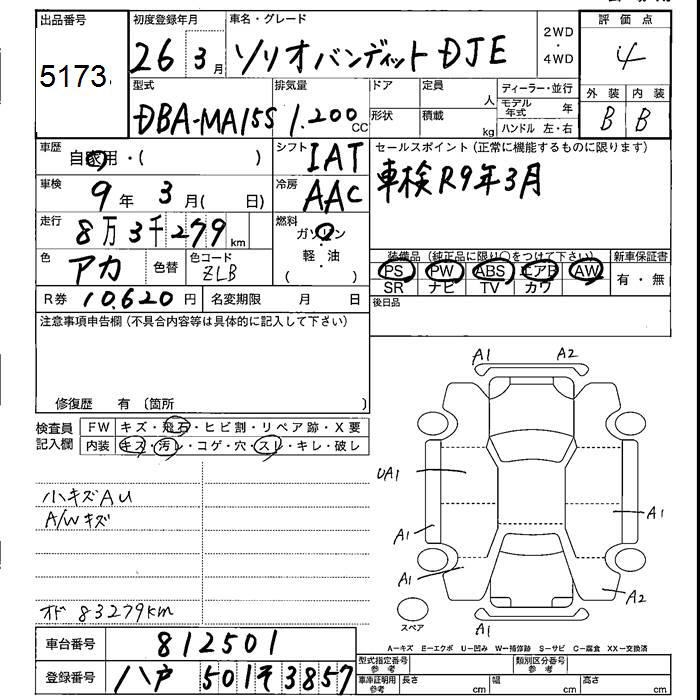 出品番号 初度登録年月 車名・グレード 2WD・4WD 評価点
5173 26 3月 ソリオバンディット DJE 4
型式 排気量 ドア 定員 人 ディーラー・並行 外装 内装
DBA-MA15S 1.200cc 形状 積載 kg モデル年式 年 B B
ハンドル 左・右
車歴 自家用・( ) シフト IAT セールスポイント(正常に機能するものに限ります)
車検 9年 3月( 日) 冷房 AAC 車検R9年3月
走行 8万3千279km 燃料 ガソリン・軽・油 ( )
色 アカ 色替 色コード ZLB
装備品(純正品に限り○をつけて下さい) 新車保証書
PS PW ABS エアB AW 有・無
SR ナビ TV カワ
R券 10,620円 名変期限 月 日 後日品
注意事項申告欄(不具合内容等は具体的に記入して下さい)
修復歴 有 〔箇所 〕
検査員記入欄 FW キズ・飛石・ヒビ割・リペア跡・X要
内装 キズ・汚レ・コゲ・穴・スレ・キレ・破レ
小キズAU
A/Wキズ
オド 83279km
A1 A2
UA1
A1 A1
A1 A2
A1
スペア
A－キズ E－エクボ U－凹み W－補修跡 S－サビ C－腐食 XX－交換済
車台番号 812501
登録番号 八戸 501 そ 3857
型式指定番号 参考 類別区分番号 参考
車庫証明用 参考 長さ cm 幅 cm 高さ cm